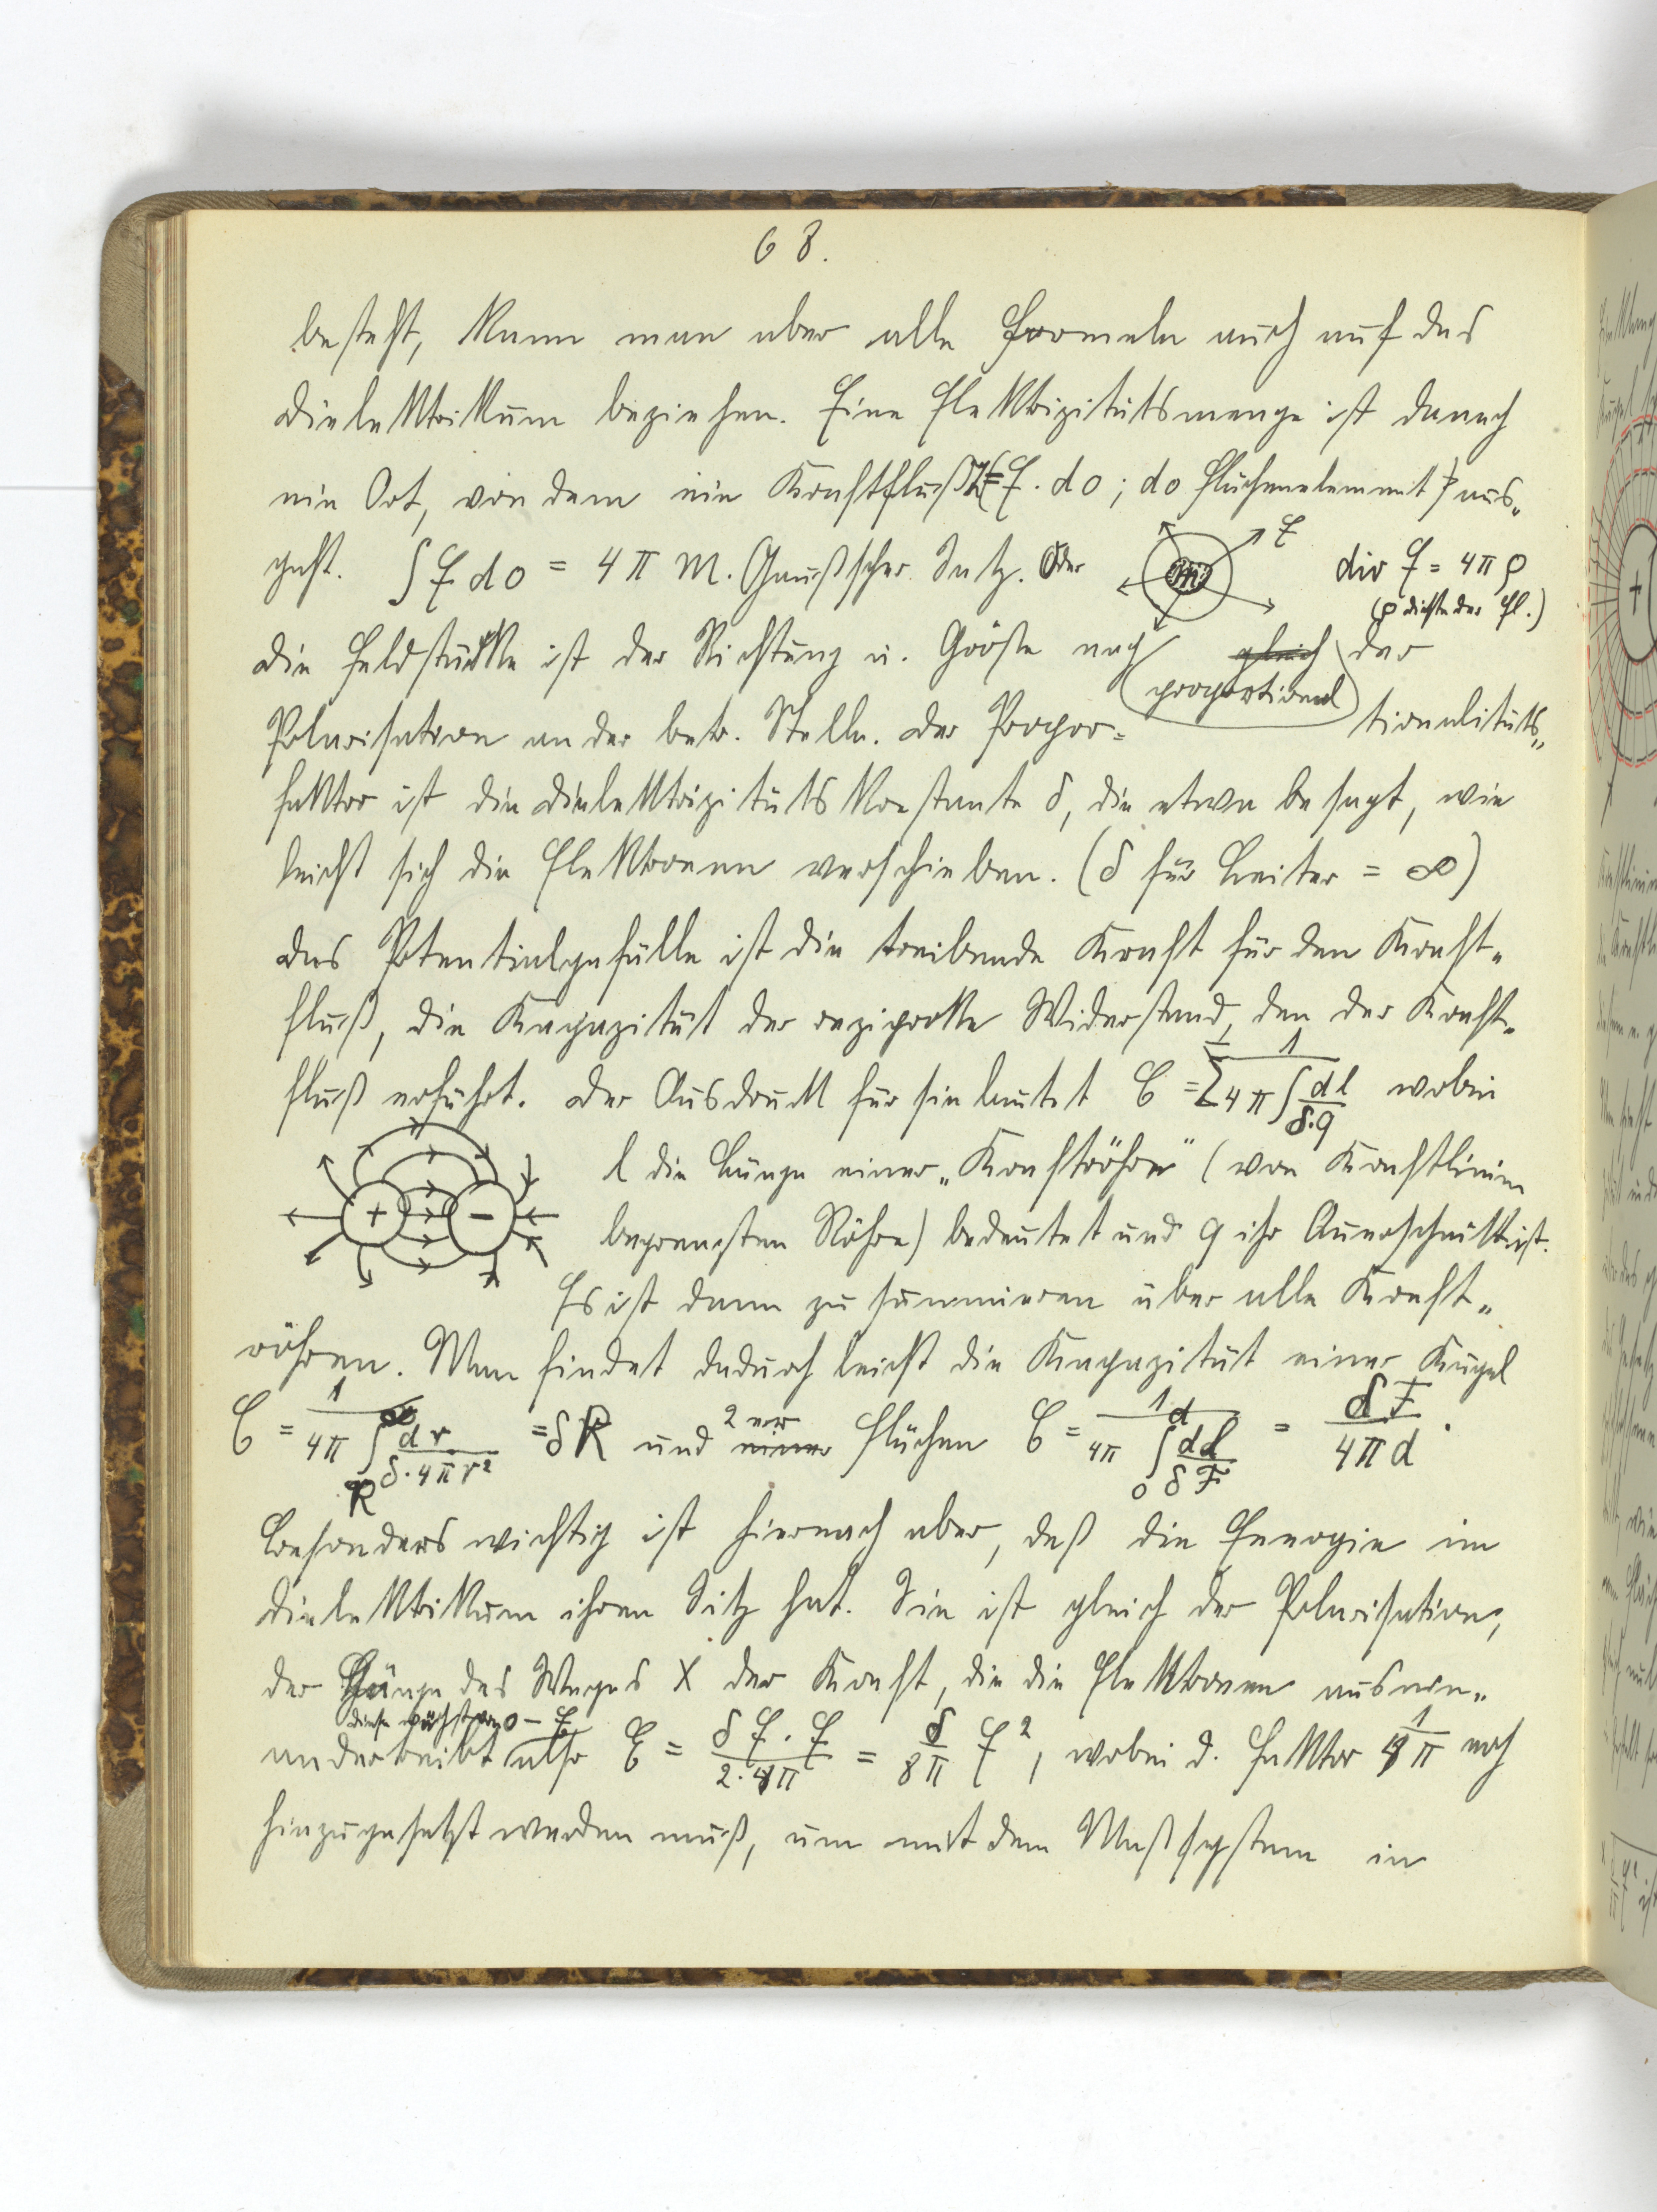 68.
besteht, kann man aber alle Formeln auch auf das
Dielektrikum beziehen. Eine Elektrizitätsmenge ist danach
ein Ort, von dem ein Kraftfluß (= E. do; do Flächenelement) aus„
geht. ∫ E do = 4 π m. Gaußscher Satz. Oder div E = 4π ρ
E
m
(ρ Dichte der El.)
Die Feldstärke ist der Richtung u. Größe nach proportional der
Polarisation an der betr. Stelle. Der Propor= tionalitäts„
faktor ist die Dielektrizitätskonstante δ, die etwa besagt, wie
leicht sich die Elektronen verschieben. (δ für Leiter = ∞)
Das Potentialgefälle ist die treibende Kraft für den Kraft„
fluß, die Kapazität der reziproke Widerstand, den der Kraft„
fluß erfährt. Der Ausdruck für sie lautet C = Σ 1 / 4 π ∫ dl / δ.q wobei
l die Länge einer „Kraftröhre" (von Kraftlinien
+ −
begrenzten Röhre) bedeutet und q ihr Querschnitt ist.
Es ist dann zu summieren über alle Kraft„
röhren. Man findet dadurch leicht die Kapazität einer Kugel
C = 1 / 4π ∫ R ∞ dr / δ.4πr² = δR und 2er Flächen C = 1 / 4π ∫ 0 d dl / δF = δF / 4πd .
Besonders wichtig ist hiernach aber, daß die Energie im
Dielektrikum ihren Sitz hat. Sie ist gleich der Polarisation,
der Länge des Weges X der Kraft, die die Elektronen ausein„
diese wächst von 0 – E
andertreibt also E = δ E . E / 2.4π = δ / 8π E², wobei d. Faktor 1 / 4π noch
hinzugesetzt werden muß, um mit dem Maßsystem in